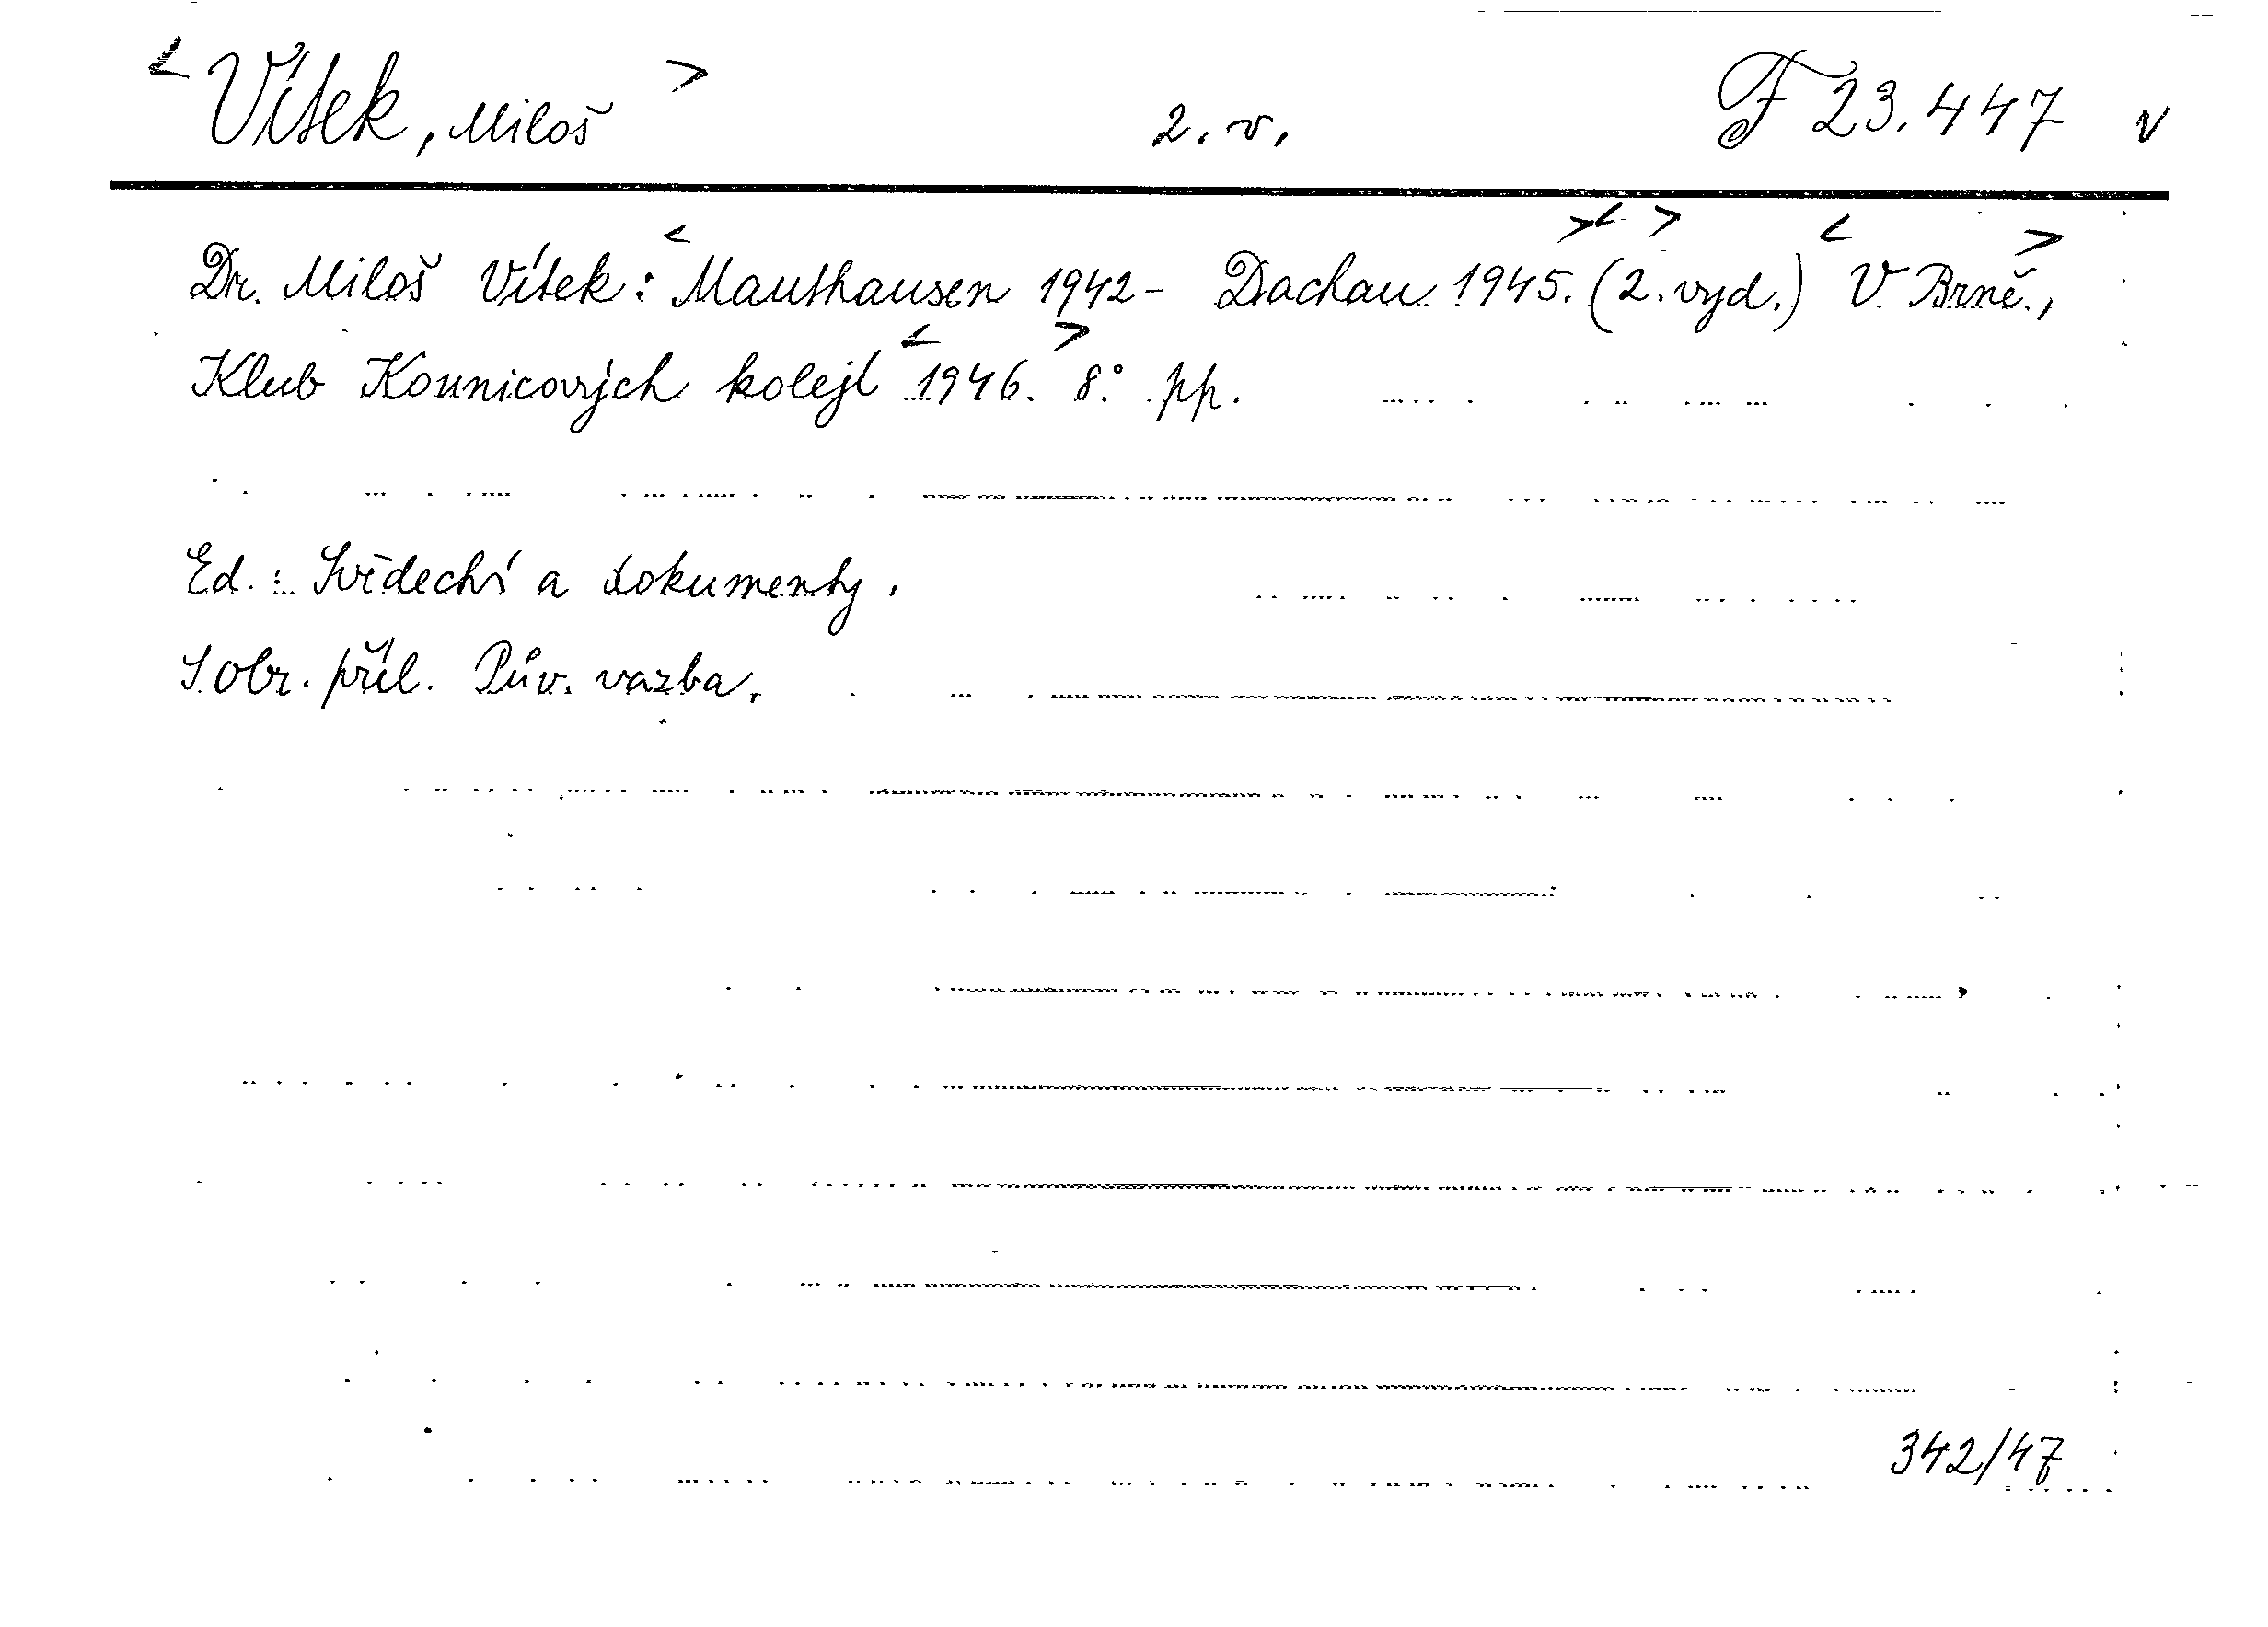 < Vítek, Miloš > 2. v. F 23.447 v
Dr. Miloš Vítek: < Mauthausen 1942 - Dachau 1945. > < (2. vyd.) > < V Brně., >
Klub Kounicových kolejí < 1946. > 8.° pp.
Ed.: Svědectví a dokumenty.
S obr. příl. Pův. vazba.
342/47